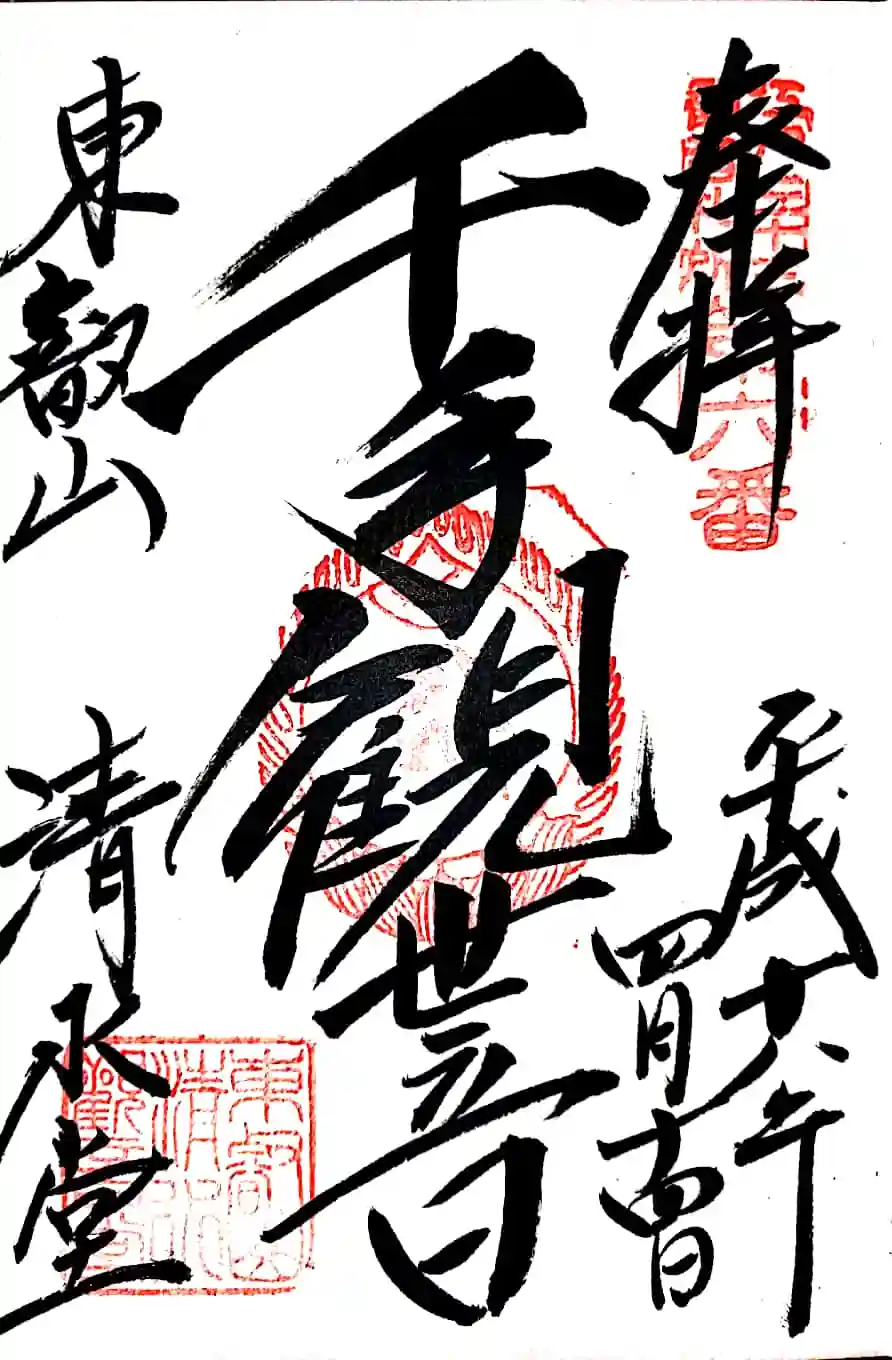 奉拝
六番
平成十八年
四月十四日
千手観世音
東叡山
清水堂
東叡山
清水